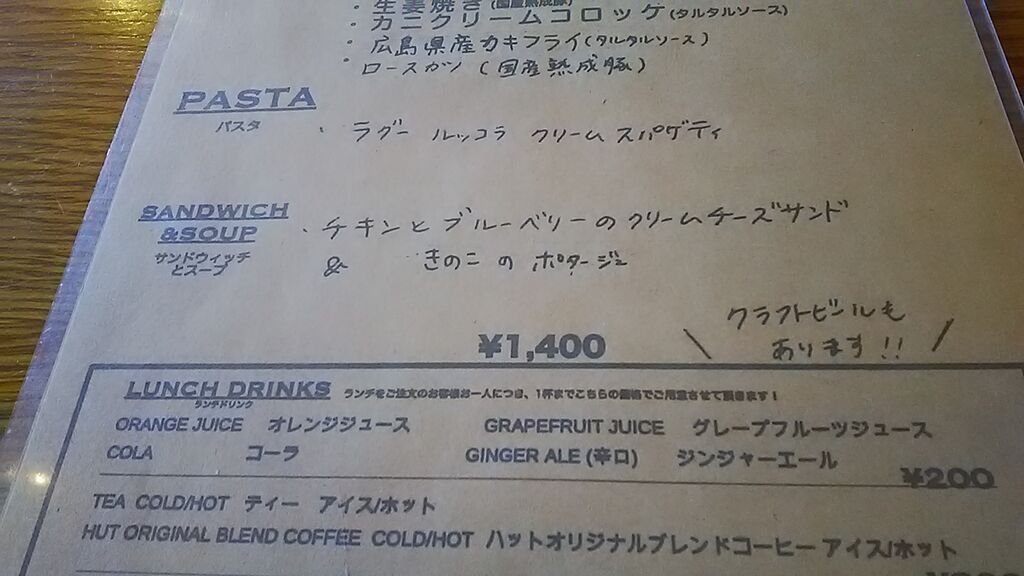 ・生姜焼き(国産熟成豚)
・カニクリームコロッケ(タルタルソース)
・広島県産カキフライ(タルタルソース)
・ロースカツ(国産熟成豚)
PASTA
パスタ
・ラグー ルッコラ クリームスパゲティ
SANDWICH
&SOUP
サンドウィッチ
とスープ
・チキンとブルーベリーのクリームチーズサンド
& きのこのポタージュ
¥1,400
\ クラフトビールも
あります!! /
LUNCH DRINKS ランチをご注文のお客様お一人につき、1杯までこちらの価格でご用意させて頂きます!
ランチドリンク
ORANGE JUICE オレンジジュース GRAPEFRUIT JUICE グレープフルーツジュース
COLA コーラ GINGER ALE (辛口) ジンジャーエール
¥200
TEA COLD/HOT ティー アイス/ホット
HUT ORIGINAL BLEND COFFEE COLD/HOT ハットオリジナルブレンドコーヒー アイス/ホット